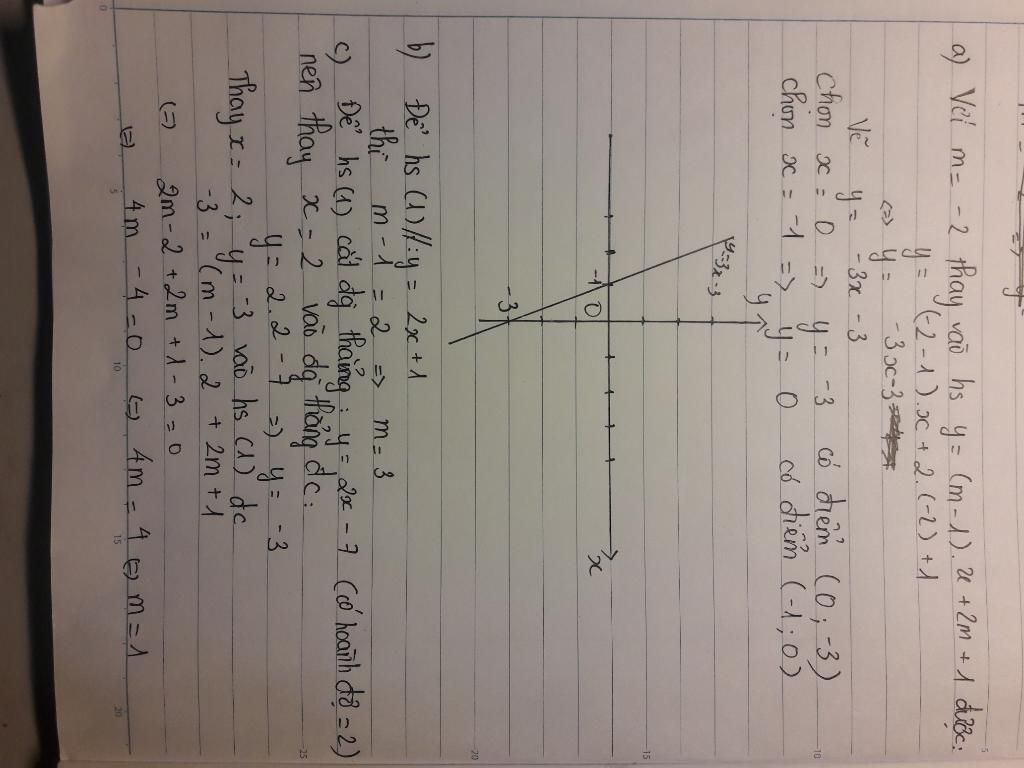 a) Với m = -2 thay vào hs y = (m-1).x + 2m + 1 được:
y = (-2-1).x + 2.(-2) + 1
<=> y = -3x-3
Vẽ y = -3x - 3
Chọn x = 0 => y = -3 có điểm (0; -3)
chọn x = -1 => y = 0 có điểm (-1; 0)
y
y=-3x-3
-1
0
x
-3
b) Để hs (1) //: y = 2x+1
thì m - 1 = 2 => m = 3
c) Để hs (1) cắt đg thẳng: y = 2x - 7 (có hoành độ = 2)
nên thay x = 2 vào đg thẳng đc:
y = 2.2 - 7 => y = -3
Thay x = 2; y = -3 vào hs (1) đc
-3 = (m-1).2 + 2m+1
(=) 2m-2 + 2m + 1 - 3 = 0
(=) 4m - 4 = 0 (=) 4m = 4 (=) m = 1